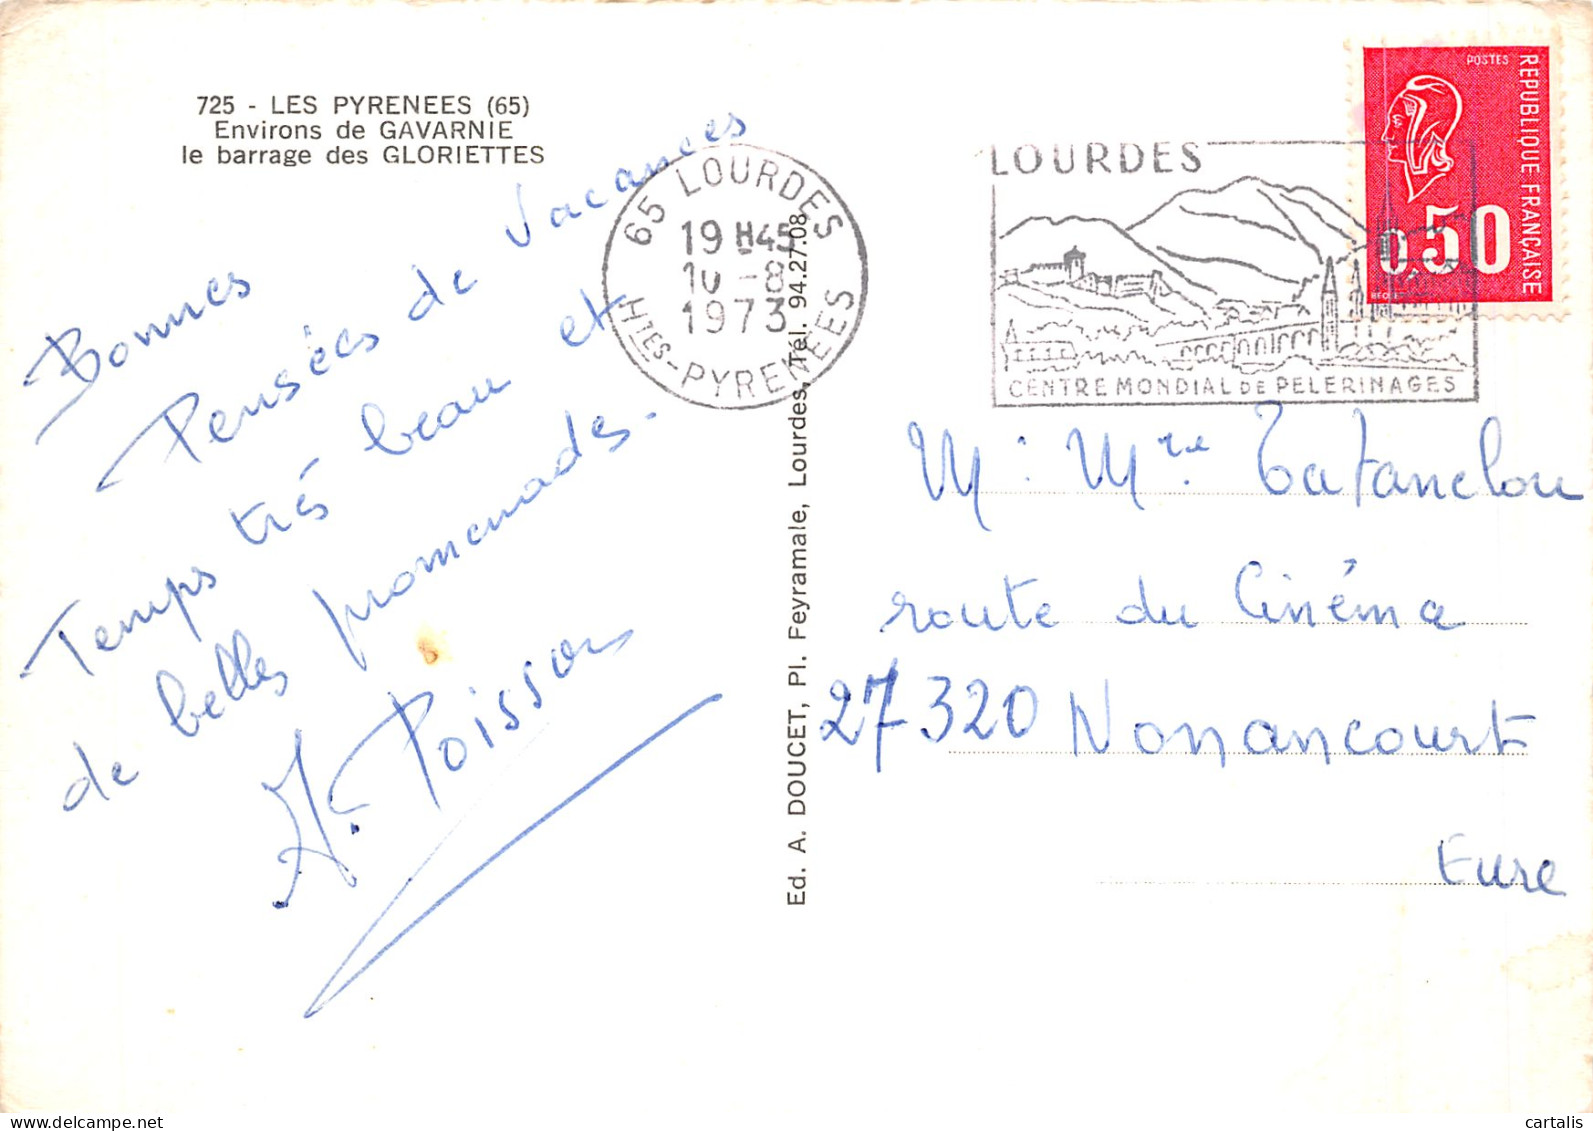 725 - LES PYRENEES (65)
Environs de GAVARNIE
le barrage des GLORIETTES
Bonnes
Pensées de Vacances
Temps très beau et
de belles promenades.
A. Poisson
65 LOURDES
19 H45
10 -8
1973
HTES-PYRENEES
LOURDES
CENTRE MONDIAL DE PELERINAGES
POSTES
REPUBLIQUE FRANÇAISE
0,50
Ed. A. DOUCET, Pl. Peyramale, Lourdes, Tél. 94.27.08
M. Mre Tatanclou
route du Cinéma
27320 Nonancourt
Eure
www.delcampe.net
cartalis